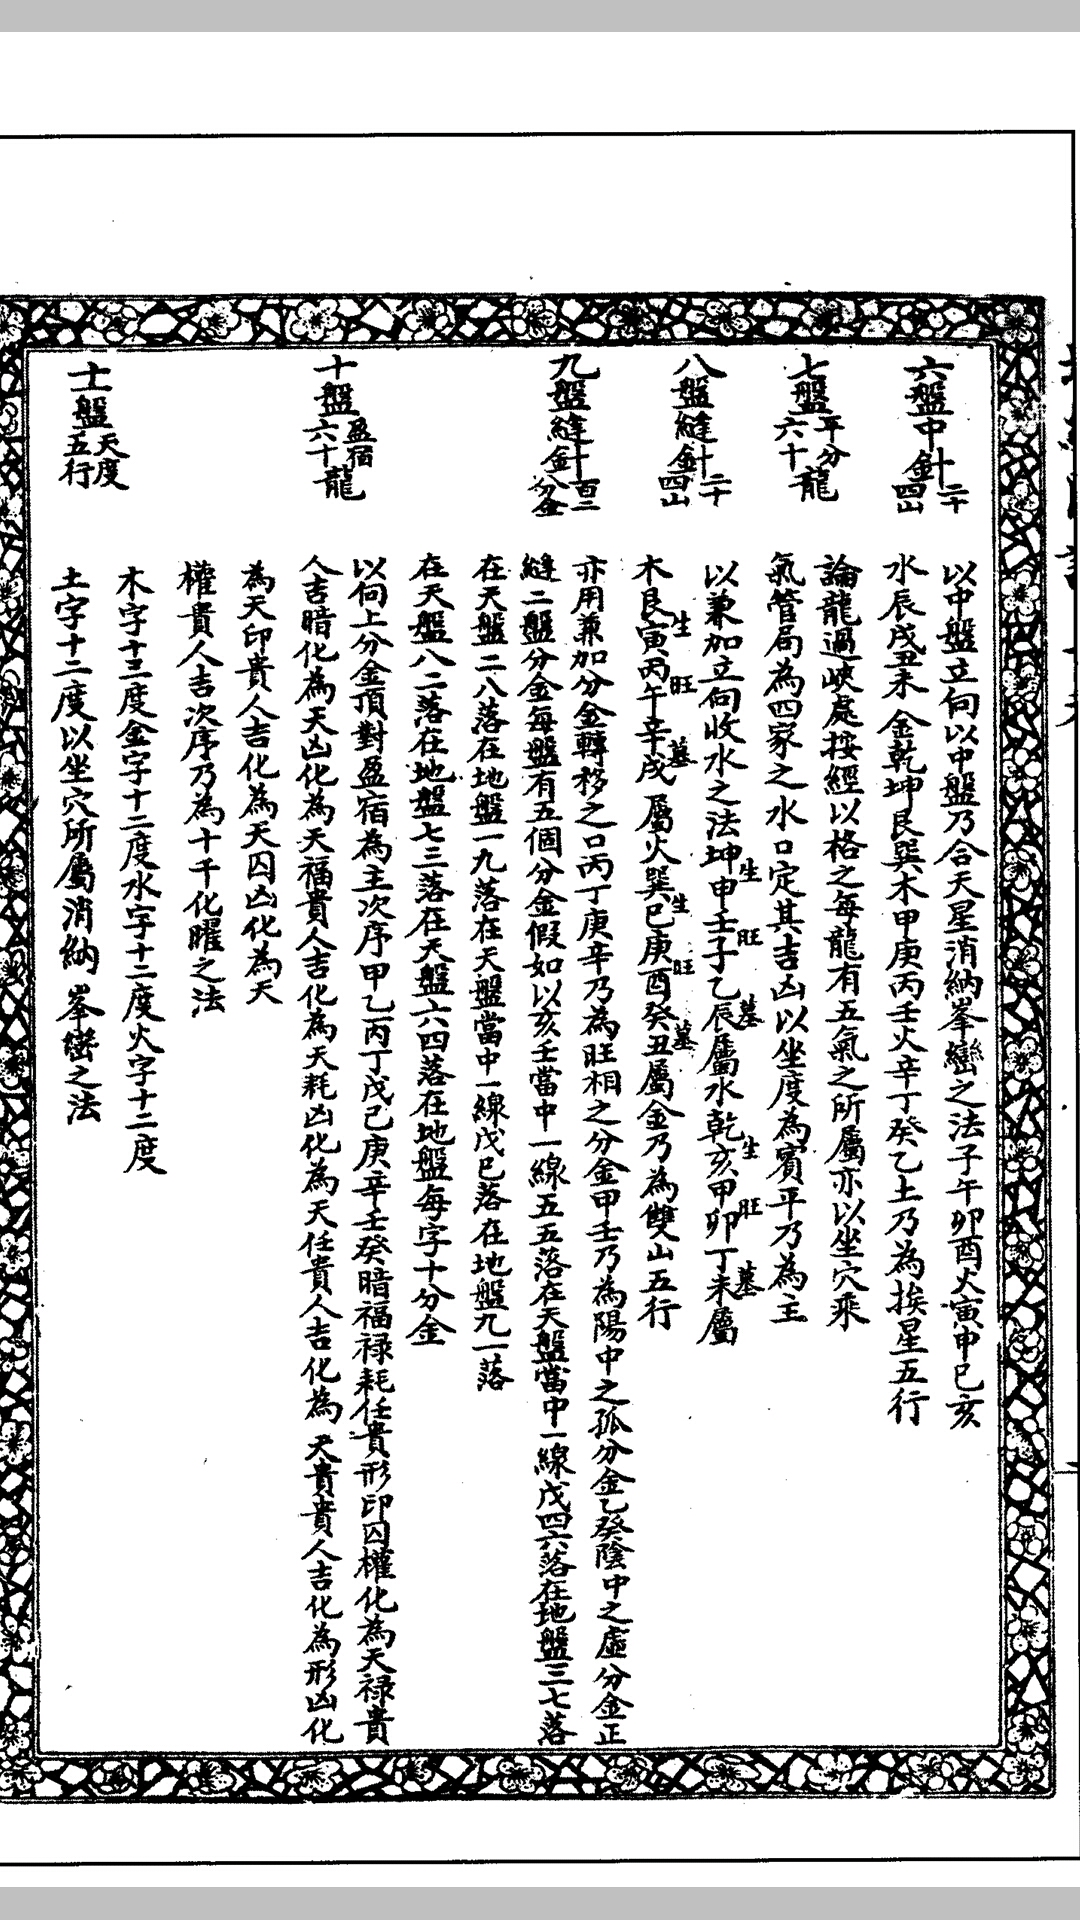 六盤中針二十四山
以中盤立向以中盤乃合天星消納峯巒之法子午卯酉火寅申巳亥
水辰戌丑未金乾坤艮巽木甲庚丙壬火辛丁癸乙土乃為挨星五行
七盤平分六十龍
論龍過峽處按經以格之每龍有五氣之所屬亦以坐穴乘
氣管局為四家之水口定其吉凶以坐度為賓平乃為主
八盤縫針二十四山
以兼加立向收水之法坤申壬子乙辰屬水乾亥甲卯丁未屬
生 旺 墓 生 旺 墓
木艮寅丙午辛戌屬火巽巳庚酉癸丑屬金乃為雙山五行
生 旺 墓 生 旺 墓
九盤縫針百二分金
亦用兼加分金轉移之口丙丁庚辛乃為旺相之分金甲壬乃為陽中之孤分金乙癸陰中之虛分金正
縫二盤分金每盤有五個分金假如以亥壬當中一線五五落在天盤當中一線戊四六落在地盤三七落
在天盤二八落在地盤一九落在天盤當中一線戊巳落在地盤九一落
在天盤八二落在地盤七三落在天盤六四落在地盤每字十分金
十盤盈宿六十龍
以向上分金頂對盈宿為主次序甲乙丙丁戊己庚辛壬癸暗福祿耗任貴形印囚權化為天祿貴
人吉暗化為天凶化為天福貴人吉化為天耗凶化為天任貴人吉化為天貴貴人吉化為形凶化
為天印貴人吉化為天囚凶化為天
權貴人吉次序乃為十干化曜之法
十一盤天度五行
木字十三度金字十二度水字十二度火字十二度
土字十二度以坐穴所屬消納峯巒之法